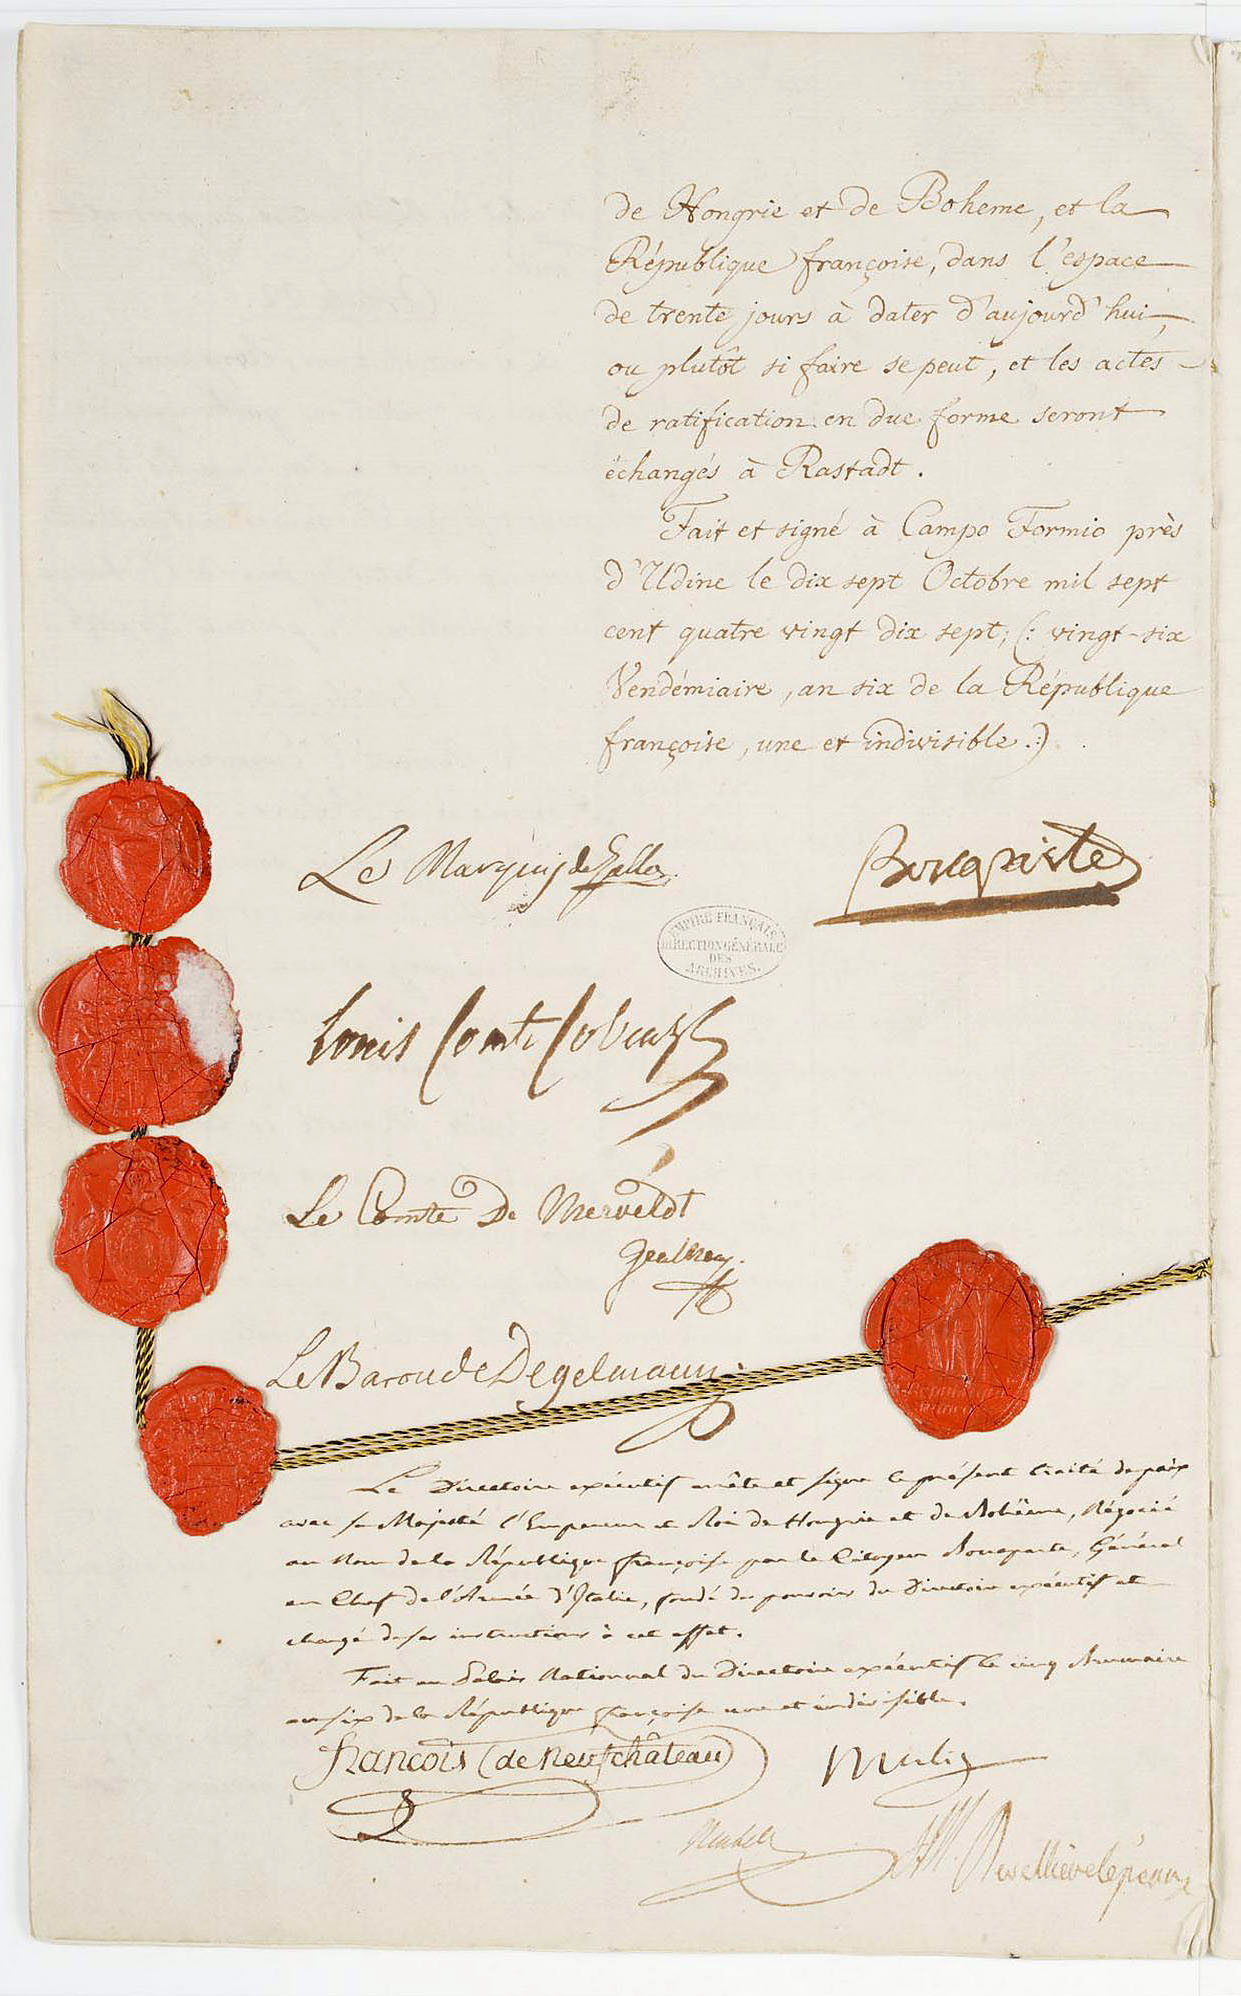 de Hongrie et de Boheme, et la
République françoise, dans l'espace
de trente jours à dater d'aujourd'hui,
ou plutôt si faire se peut, et les actes
de ratification en due forme seront
échangés à Rastadt.
Fait et signé à Campo Formio près
d'Udine le dix sept Octobre mil sept
cent quatre vingt dix sept; (: vingt-six
Vendémiaire, an six de la République
françoise, une et indivisible.:)
Le Marquis de Gallo.
Bonaparte
EMPIRE FRANÇAIS
DIRECTION GÉNÉRALE
DES
ARCHIVES.
Louis Comte Cobenzl
Le Comte De Merveldt
Le Baron de Degelmann
Le Directoire exécutif arrête et signe le présent traité de paix
avec sa Majesté l'Empereur et Roi de Hongrie et de Bohëme, Négocié
au Nom de la République françoise par le Citoyen Bonaparte, Général
en Chef de l'Armée d'Italie, fondé de pouvoirs du Directoire exécutif et
chargé de ses instructions à cet effet.
Fait au Palais National du Directoire exécutif le cinq Brumaire
an six de la République françoise une et indivisible.
François (de Neufchâteau)
Merlin
Reubell
Revellière lépeaux